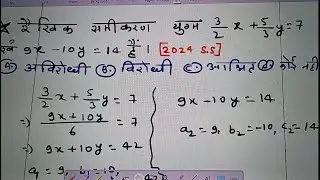 रैखिक समीकरण युग्म 3/2 x + 5/3 y = 7
एवं 9x - 10y = 14 है। [2024 S.S]
A. अविरोधी B. विरोधी C. आश्रित D. कोई नहीं
3/2 x + 5/3 y = 7
⇒ 9x + 10y / 6 = 7
⇒ 9x + 10y = 42
a₁ = 9, b₁ = 10,
9x - 10y = 14
a₂ = 9, b₂ = -10, c₂ = 14